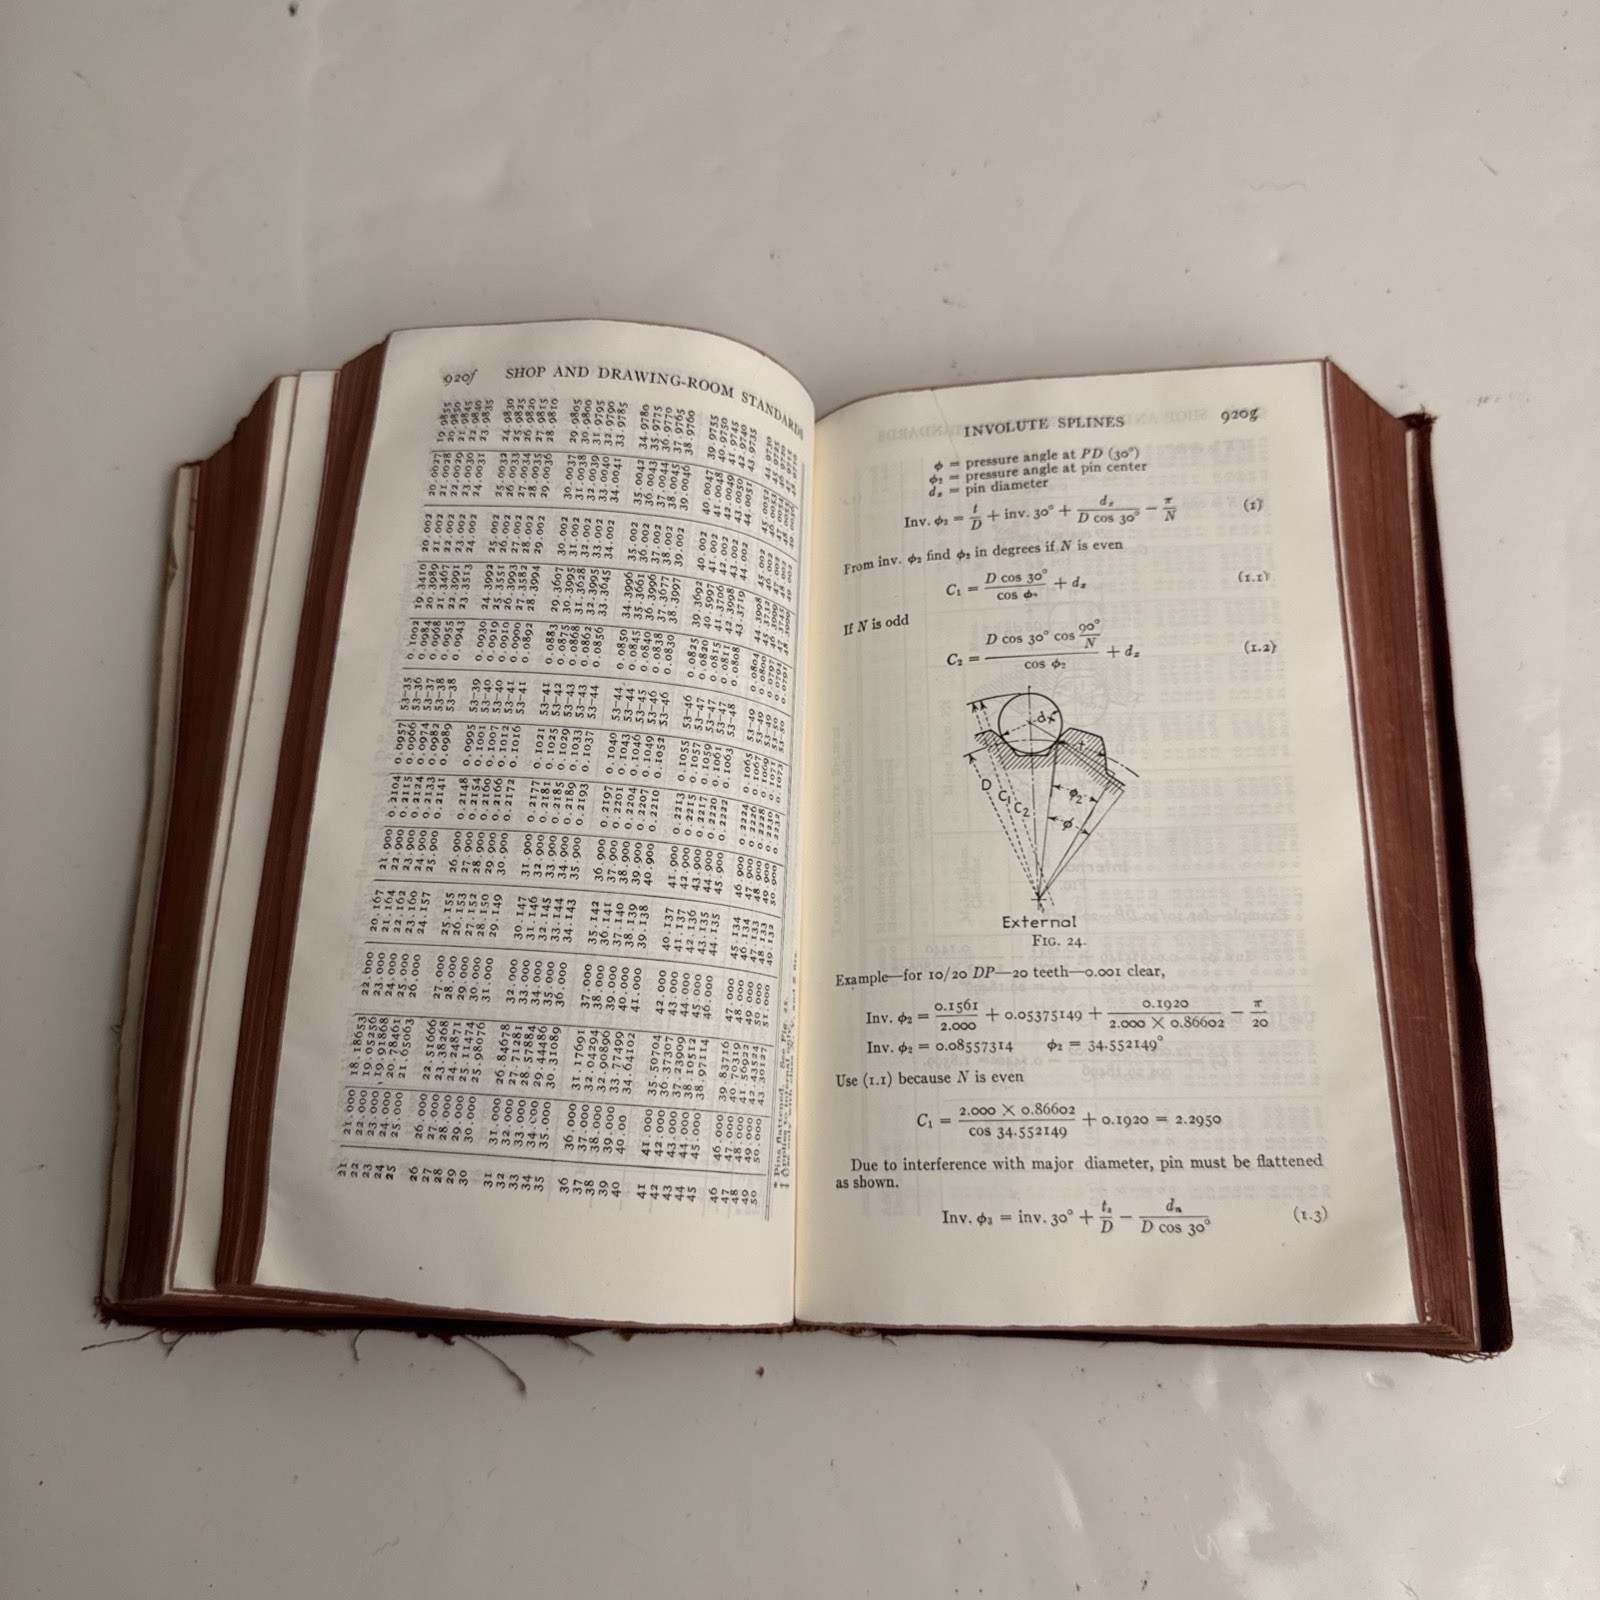 920f SHOP AND DRAWING-ROOM STANDARDS
21 21.000 18.18653 22.000 20.167 21.900 0.2104 0.0957 53-35 0.1002 19.3410 20.002 20.0027 19.9855
22 22.000 19.05256 23.000 21.164 22.900 0.2115 0.0966 53-36 0.0984 20.3989 21.002 21.0028 20.9850
23 23.000 19.91868 24.000 22.162 23.900 0.2124 0.0974 53-37 0.0968 21.3467 22.002 22.0029 21.9845
24 24.000 20.78461 25.000 23.160 24.900 0.2133 0.0982 53-38 0.0955 22.3991 23.002 23.0030 22.9840
25 25.000 21.65063 26.000 24.157 25.900 0.2141 0.0989 53-38 0.0943 23.3513 24.002 24.0031 23.9835
26 26.000 22.51666 27.000 25.155 26.900 0.2148 0.0995 53-39 0.0930 24.3992 25.002 25.0032 24.9830
27 27.000 23.38268 28.000 26.153 27.900 0.2154 0.1001 53-40 0.0919 25.3551 26.002 26.0033 25.9825
28 28.000 24.24871 29.000 27.152 28.900 0.2160 0.1007 53-40 0.0910 26.3993 27.002 27.0034 26.9820
29 29.000 25.11474 30.000 28.150 29.900 0.2166 0.1012 53-41 0.0900 27.3582 28.002 28.0035 27.9815
30 30.000 25.98076 31.000 29.149 30.900 0.2172 0.1016 53-41 0.0892 28.3994 29.002 29.0036 28.9810
31 31.000 26.84678 32.000 30.147 31.900 0.2177 0.1021 53-41 0.0883 29.3607 30.002 30.0037 29.9805
32 32.000 27.71281 33.000 31.146 32.900 0.2181 0.1025 53-42 0.0875 30.3995 31.002 31.0038 30.9800
33 33.000 28.57884 34.000 32.145 33.900 0.2185 0.1029 53-43 0.0868 31.3628 32.002 32.0039 31.9795
34 34.000 29.44486 35.000 33.144 34.900 0.2189 0.1033 53-43 0.0862 32.3995 33.002 33.0040 32.9790
35 35.000 30.31089 36.000 34.143 35.900 0.2193 0.1037 53-44 0.0856 33.3645 34.002 34.0041 33.9785
36 36.000 31.17691 37.000 35.142 36.900 0.2197 0.1040 53-44 0.0850 34.3996 35.002 35.0042 34.9780
37 37.000 32.04294 38.000 36.141 37.900 0.2201 0.1043 53-44 0.0845 35.3661 36.002 36.0043 35.9775
38 38.000 32.90896 39.000 37.140 38.900 0.2204 0.1046 53-45 0.0840 36.3996 37.002 37.0044 36.9770
39 39.000 33.77499 40.000 38.139 39.900 0.2207 0.1049 53-46 0.0838 37.3677 38.002 38.0045 37.9765
40 40.00 34.64102 41.000 39.138 40.900 0.2210 0.1052 53-46 0.0830 38.3997 39.002 39.0046 38.9760
41 41.000 35.50704 42.000 40.137 41.900 0.2213 0.1055 53-46 0.0825 39.3692 40.002 40.0047 39.9755
42 42.000 36.37307 43.000 41.137 42.900 0.2215 0.1057 53-47 0.0820 40.5997 41.002 41.0048 40.9750
43 43.000 37.23909 44.000 42.136 43.900 0.2217 0.1059 53-47 0.0815 41.3706 42.002 42.0049 41.9745
44 44.000 38.10512 45.000 43.135 44.900 0.2220 0.1061 53-47 0.0811 42.3998 43.002 43.0050 42.9740
45 45.000 38.97114 46.000 44.135 45.900 0.2222 0.1063 53-48 0.0808 43.3719 44.002 44.0051 43.9735
46 46.000 39.83716 47.000 45.134 46.900 0.2224 0.1065 53-49 0.0804 44.3998 45.002 45.0052
47 47.000 40.70319 48.000 46.134 47.900 0.2226 0.1067 53-49 0.0800 45.3732 46.002
48 48.000 41.56922 49.000 47.133 48.900 0.2228 0.1069 53-49 0.0797
49 49.000 42.43524 50.000 48.133 49.900 0.2230 0.1071 53-50 0.0794
50 50.000 43.30127 51.000 49.132 50.900 0.2232 0.1073 53-50 0.0791
* Pins flattened. See Fig.
INVOLUTE SPLINES 920g
φ = pressure angle at PD (30°)
φ₂ = pressure angle at pin center
dₓ = pin diameter
Inv. φ₂ = t/D + inv. 30° + dₓ/(D cos 30°) − π/N (1)
From inv. φ₂ find φ₂ in degrees if N is even
C₁ = (D cos 30°)/(cos φ₂) + dₓ (1.1)
If N is odd
C₂ = (D cos 30° cos 90°/N)/(cos φ₂) + dₓ (1.2)
dₓ
t
D C₁ C₂
φ₂
φ
External
FIG. 24.
Example—for 10/20 DP—20 teeth—0.001 clear,
Inv. φ₂ = 0.1561/2.000 + 0.05375149 + 0.1920/(2.000 × 0.86602) − π/20
Inv. φ₂ = 0.08557314 φ₂ = 34.552149°
Use (1.1) because N is even
C₁ = (2.000 × 0.86602)/(cos 34.552149) + 0.1920 = 2.2950
Due to interference with major diameter, pin must be flattened
as shown.
Inv. φ₃ = inv. 30° + tₛ/D − dₙ/(D cos 30°) (1.3)